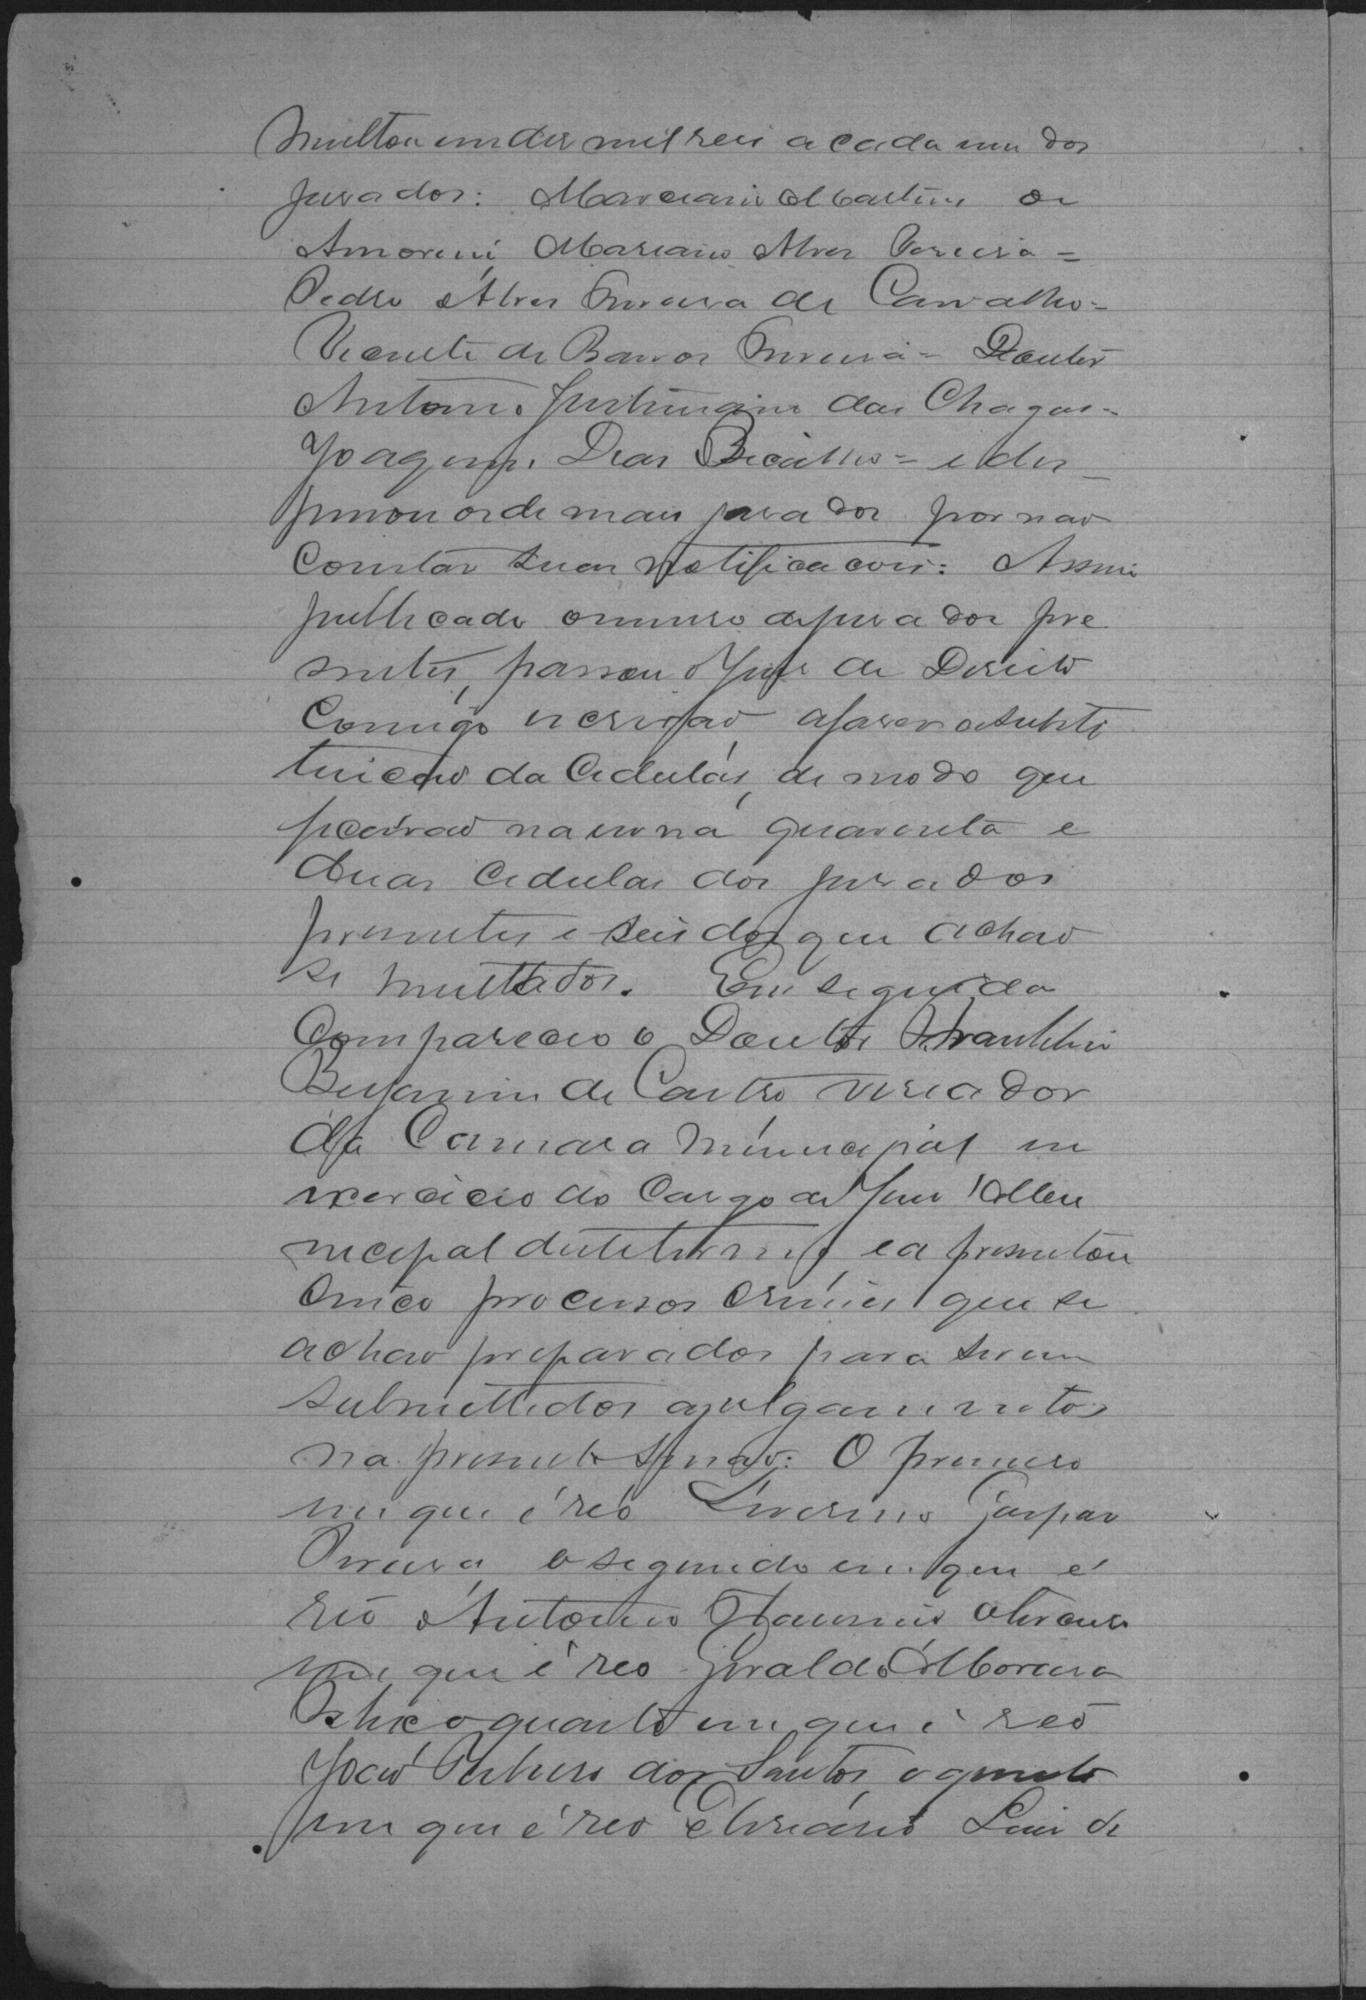 Multou em des mil reis a cada um dos
jurados: Marciano Martins de
Amorim, Mariano Alves Pereira =
Pedro Alves Pereira de Carvalho =
Vicente de Barros Pereira = Doutor
Antonio Justiniano das Chagas =
Joaquim Dias Bicalho = e dis_
pensou os de mais jurados por nao
constar suas notificacoes: Assim
publicado o numero de jurados pre
sentes, passou o Juis de Direito
comigo escrivao afaser a substi
tuicao da cedulas, de modo que
ficárao na urna quarenta e
duas cedulas dos jurados
presentes e seis dos que achao
se multados. Em seguida
Compareceo o Doutor Franklin
Benjamim de Castro vereador
da Camara Municipal em
exercicio do cargo de Juis Mu
nicipal deste termo, e a presentou
cinco processos crimes que se
achao preparados para serem
submettidos a julgamentos
na presente sessao: O primeiro
em que é réo Severino Gaspar
Pereira, o segundo em que é
réo Antonio o terceiro
em que é reo Giraldo Moreira
o quarto em que é reo
João dos Santos o quinto
em que é reo Luis de